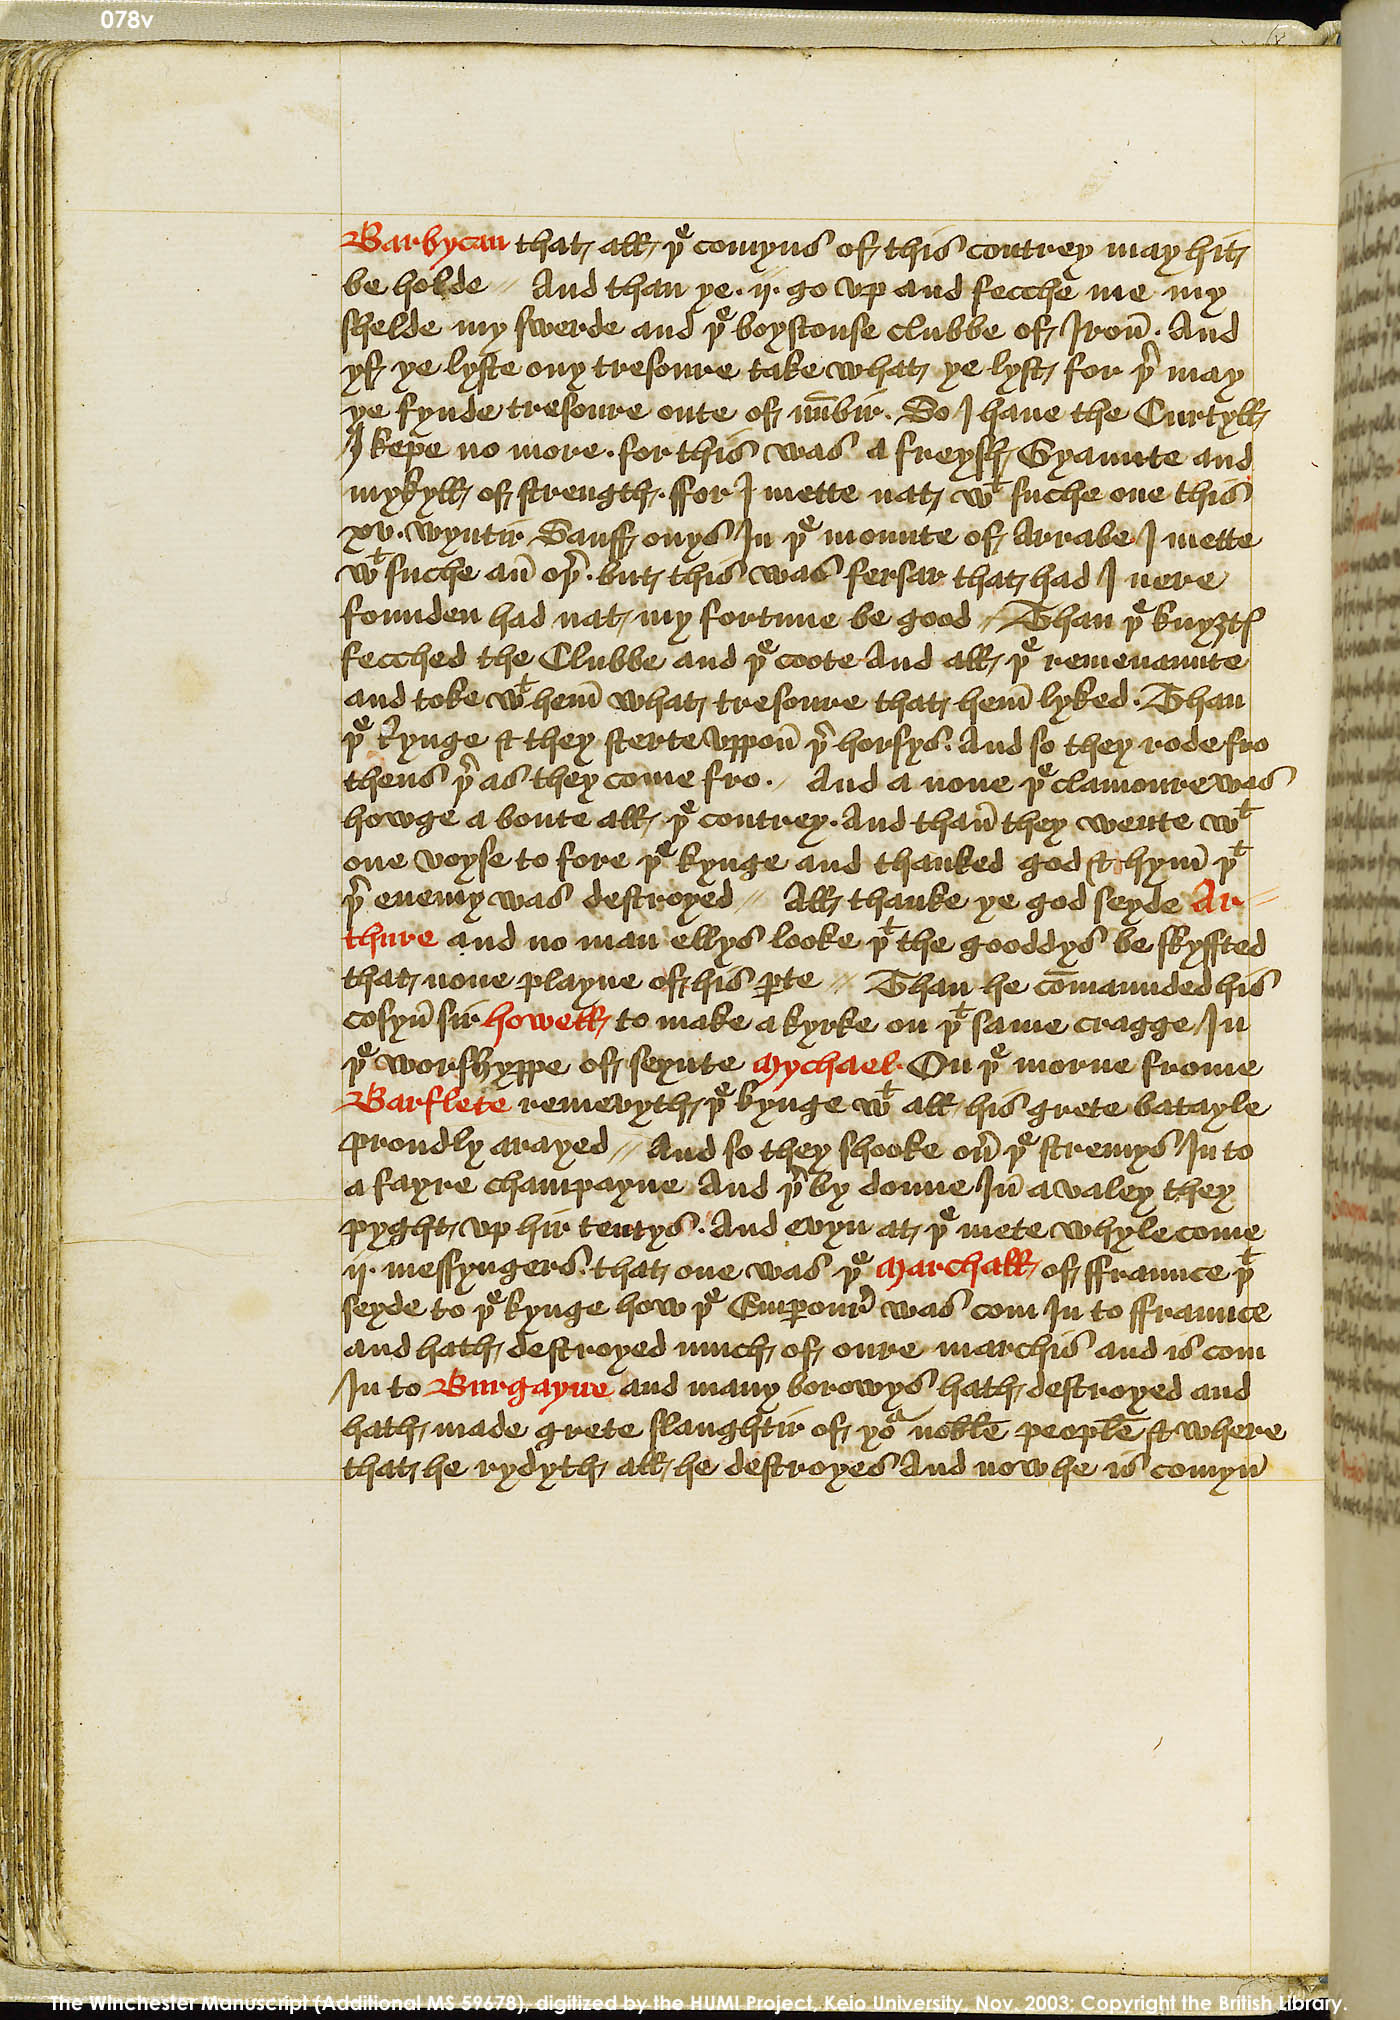 078v
Barbycan that all þe comyns of this contrey may hit
be holde // And than ye .ij. go vp and fecche me my
shelde my swerde and þe boystouse clubbe of Iron̄ . And
yf ye lyste ony tresoure take what ye lyst for þr may
ye fynde tresoure oute of nūbir . So I haue the Curtyll
I kepe no more . for this was a freysh Gyaunte and
mykyll of strength . ffor I mette nat wt suche one this
xv . wyntir Sauff onys In þe mounte of Arrabe I mette
wt suche an̄ oþr . but this was fersar that had I nere
founden had nat my fortune be good // Than þe knyȝtꝭ
fecched the Clubbe and þe coote And all þe remenaunte
and toke wt hem̄ what tresoure that hem̄ lyked . Than
þe kynge & they sterte vppon̄ þr horsys . And so they rode fro
thens þr as they come fro . // And a none þe clamoure was
howge a boute all þe contrey . And than̄ they wente wt
one voyse to fore þe kynge and thanked god & hym̄ þt
þr enemy was destroyed // All thanke ye god seyde Ar//
thure and no man ellys looke þt the gooddys be skyffted
that none playne of his ꝑte // Than he cōmaunded his
cosyn̄ sir howell to make a kyrke on þt same cragge In
þe worshyppe of seynte Mychael . On þe morne frome
Barflete remevyth þe kynge wt all his grete batayle
proudly arayed // And so they shooke oūr þe stremys In to
a fayre champayne And þr by doune In̄ a valey they
pyght vp hir tentys . And evyn at þe mete whyle come
ij . messyngers . that one was þe Marchall of ffraunce þt
seyde to þe kynge how þe Emꝑoure was com In to ffraunce
and hath destroyed much of oure marchis and is com
In to Burgayne and many borowys hath destroyed and
hath made grete slaughtir of yor noble people & where
that he rydyth all he destroyes And now he is comyn̄
The Winchester Manuscript (Additional MS 59678), digitized by the HUMI Project, Keio University, Nov. 2003; Copyright the British Library.